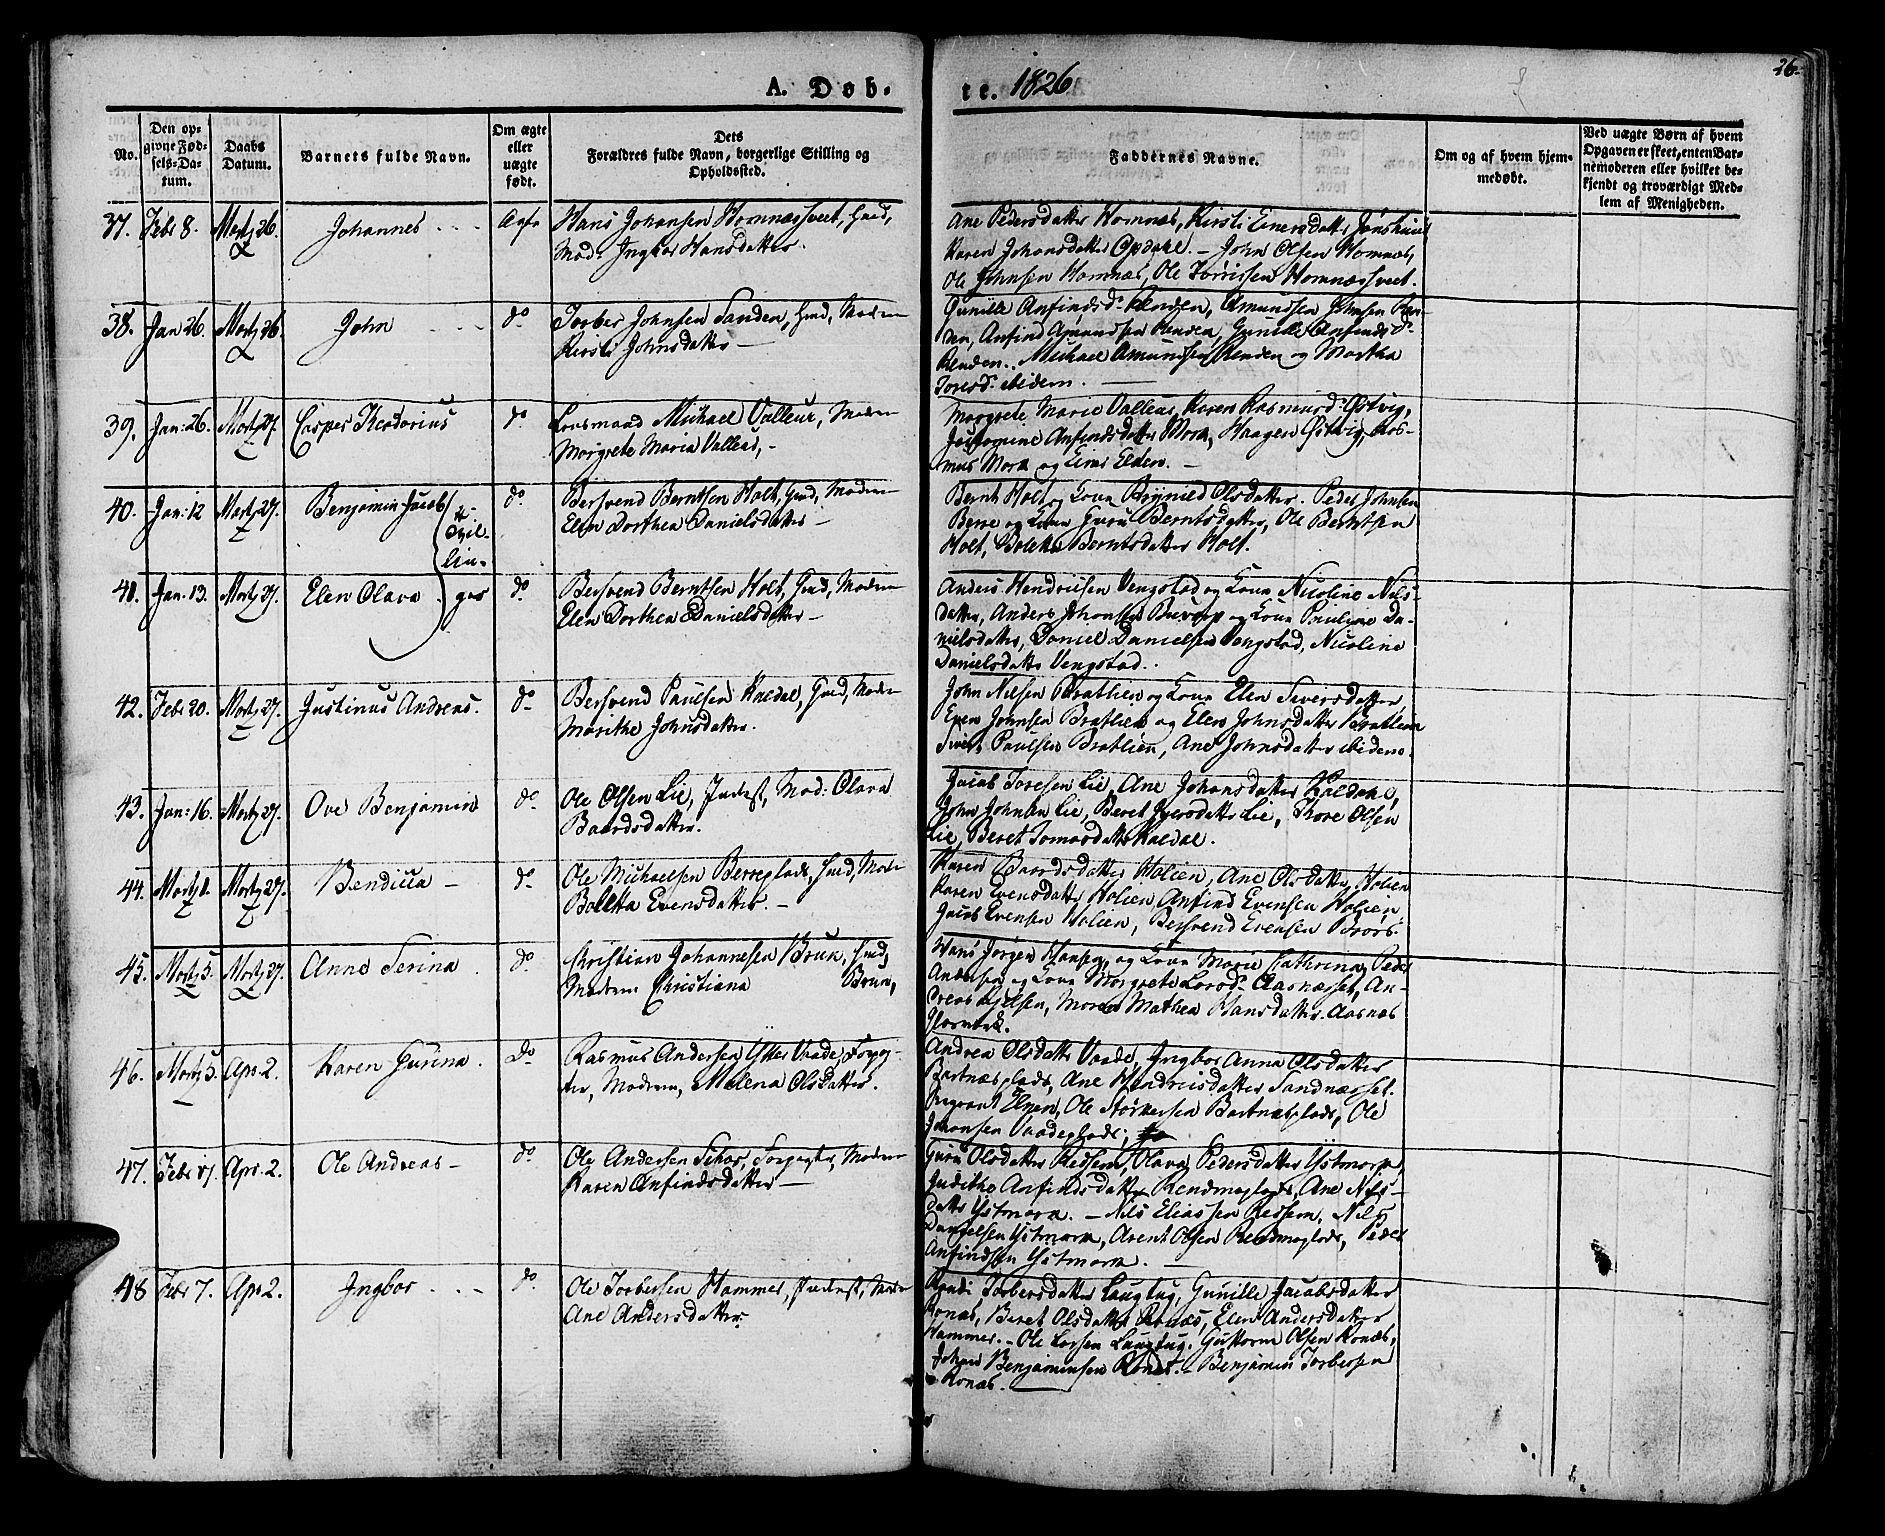 A. Døb-
te. 1826
26.
No.
Den op-
givne Fød-
sels-Da-
tum.
Daabs
Datum.
Barnets fulde Navn.
Om ægte
eller
uægte
født.
Dets
Forældres fulde Navn, borgerlige Stilling og
Opholdssted.
Faddernes Navne.
Om og af hvem hjem-
medøbt.
Ved uægte Børn af hvem
Opgaven er skeet, enten Bar-
nemoderen eller hvilket be-
kjendt og troværdigt Med-
lem af Menigheden.
37. Febr 8. Martz 26. Johannes
Hans Johansen Homnæssveet,
Mod: Ingbor Hansdatter.
Ane Pedersdatter Homnæs, Kirsti Einersdatter
Karen Johansdatter Opdahl. - John Olsen Homnæs,
Ole Johnsen Homnæs, Ole Homnæssveet.
38. Jan 26. Martz 26. John do
Torber Johnsen Sanden, Modren
Kirsti Johnsdatter -
Gunille Anfindsd: Renden, Amundsen
Anfind Amundsen Renden, Gunille Anfindsd:
Renden. Michael Amundsen Renden og Martha
Toresd: ibidem.
39. Jan: 26. Martz 27. Casper Theodorius do
Michael Valleur, Modren
Morgrete Maria Valleur, -
Morgrete Marie Valleur, Karen Rasmusd: Østvig,
Anfindsdatter Morn, Haagen Østvig, Ras-
mus Morn og Einer Elden. -
40. Jan: 12 Martz 27. Benjamin Jacob do
Tvil-
lin-
Bersvend Berntsen Holt, Gmd, Modren
Elen Dorthea Danielsdatter -
Bernt Holt og Kona Brynild Olsdatter. Peder Johnsen
Berre og Kona Guru Berntsdatter, Ole Berntsen
Holt, Boletta Berntsdatter Holt.
41. Jan. 13. Martz 27. Elen Olava ger do
Bersvend Berntsen Holt, Gmd, Modren
Elen Dorthea Danielsdatter -
Anders Hendrichsen Vengstad og Kona Nicoline Nils-
datter, Anders Johansen og Kona Pauline Da-
nielsdatter, Daniel Danielsen Vengstad, Nicoline
Danielsdatter Vengstad.
42. Febr 20. Martz 27. Justinus Andreas. do
Bersvend Paulsen Kaldal, Gmd, Modren
Marithe Johnsdatter.
John Nilsen Bratlien og Kona Elen Siversdatter,
Even Johnsen Bratlien og Elen Johnsdatter Bratlien
Sivert Paulsen Bratlien, Ane Johnsdatter ibidem.
43. Jan: 16. Martz 27. Ove Benjamin do
Ole Olsen Lie, Inderst, Mod: Olava
Baardsdatter.
Jacob Toresen Lie, Ane Johansdatter Kaldahl,
John Johnsen Lie, Beret Lie, Thore Olsen
Lie, Beret Tomasdatter Kaldal.
44. Martz 1. Martz 27. Bendicta - do
Ole Michaelsen Berreplads, Modr:
Boletta Evensdatter. -
Karen Baardsdatter Holien, Ane Olsdatter Holien
Karen Evensdatter Holien, Anfind Evensen Holien,
Jacob Evensen Holien, Bersvend Evensen
45. Martz 5. Martz 27. Anne Serina do
Christian Johannesen Brun,
Modren Christiana Brun,
Hans Jørgen Hansen og Kona Marie Cathrina, Peder
Andersen og Kona Morgrete Aasnæsset, An-
dreas Mathea Hansdatter Aasnæs
46. Martz 5. Apr. 2. Karen Gurina do
Rasmus Andersen Ytter Vaade, Forpag-
ter, Modren, Malena Olsdatter.
Andrea Olsdatter Vaade, Ingbor Anna Olsdatter
Bartnæsplads, Ane Hendricsdatter Sandnæsset.
Ole Størkersen Bartnæsplads, Ole
Johansen Vaadeplads,
47. Febr 17. Apr. 2. Ole Andreas - do
Ole Andersen Forpagter, Modren
Karen Anfindsdatter -
Guru Olsdatter Ressem, Olava Pedersdatter Ystmorn,
Judithe Anfindsdatter Ane Nils-
datter Ystmorn. - Nils Eliassen Ressem, Nils
Danielsen Ystmorn, Arent Olsen Peder
Anfindsen Ystmorn.
48 Febr 7. Apr 2. Ingbor do
Ole Torbersen Hammer, Inderst, Modr
Ane Andersdatter.
Randi Torbersdatter Laugtug, Gunille Jacobsdatter
Ronæs, Beret Olsdatter Ronæs, Elen Andersdatter
Hammer. - Ole Larsen Laugtug. Guttorm Olsen Ronæs,
Johan Benjaminsen Ronæs. - Benjamin Torbersen
Ronæs.